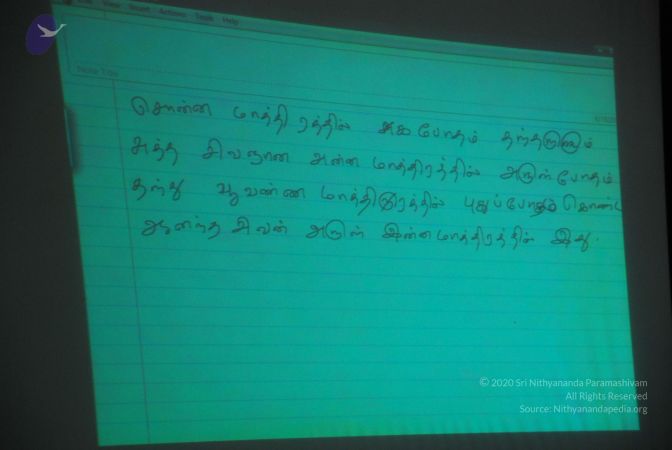 Edit View Insert Actions Tools Help
Note Title
சொன்ன மாத்திரத்தில் சுக போதம் தந்தருளும்
அத்த சிவஞான அன்ன மாத்திரத்தில் அருள் போதம்
தந்து பூவண்ண மாத்திரத்தில் புதுப்போதம் கொண்ட
ஆனந்த சிவன் அருள் இன்னமாத்திரத்தில் இது.
© 2020 Sri Nithyananda Paramashivam
All Rights Reserved
Source: Nithyanandapedia.org